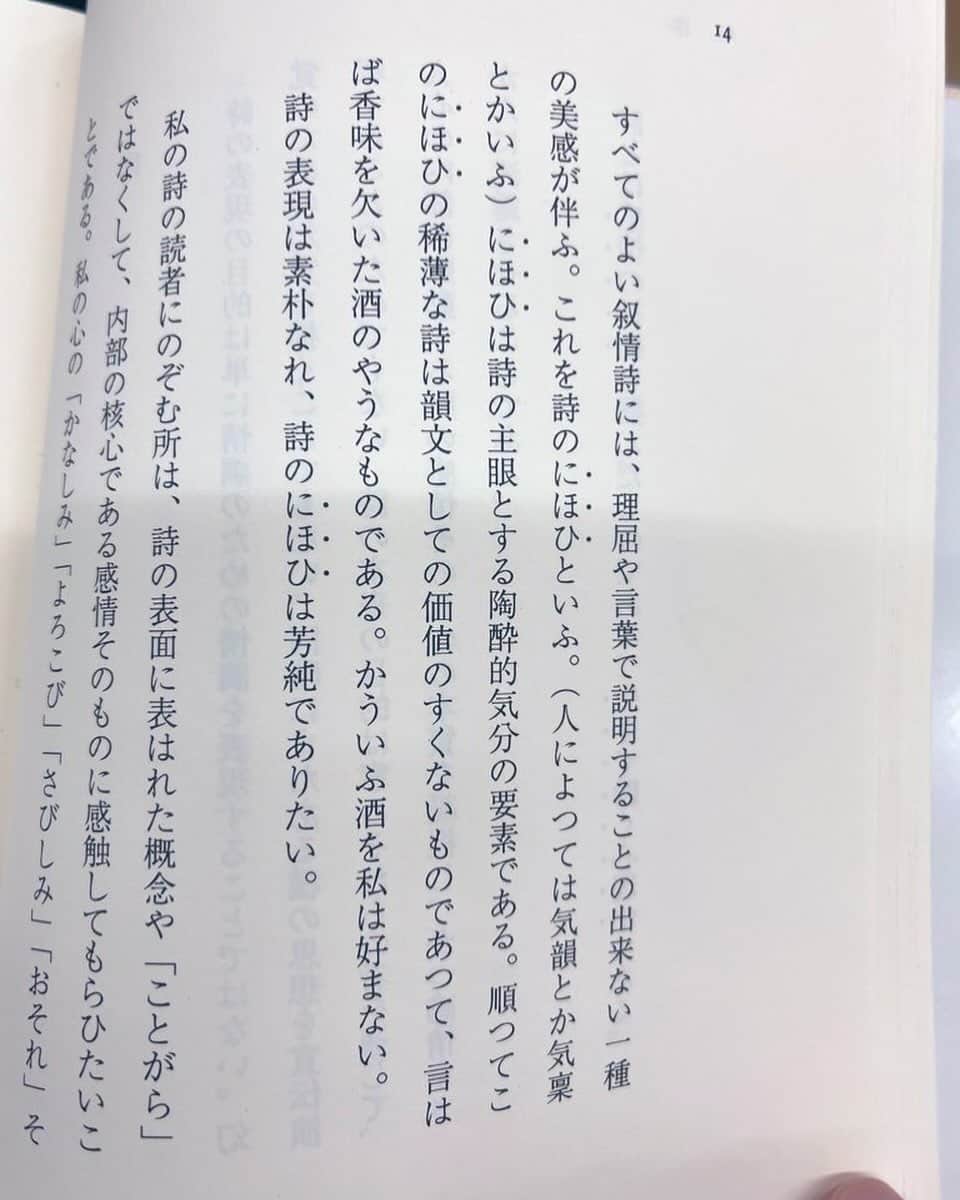 14
すべてのよい叙情詩には、理屈や言葉で説明することの出来ない一種
の美感が伴ふ。これを詩のにほひといふ。(人によつては気韻とか気稟
とかいふ)にほひは詩の主眼とする陶酔的気分の要素である。順つてこ
のにほひの稀薄な詩は韻文としての価値のすくないものであつて、言は
ば香味を欠いた酒のやうなものである。かういふ酒を私は好まない。
詩の表現は素朴なれ、詩のにほひは芳純でありたい。
私の詩の読者にのぞむ所は、詩の表面に表はれた概念や「ことがら」
ではなくして、内部の核心である感情そのものに感触してもらひたいこ
とである。私の心の「かなしみ」「よろこび」「さびしみ」「おそれ」そ